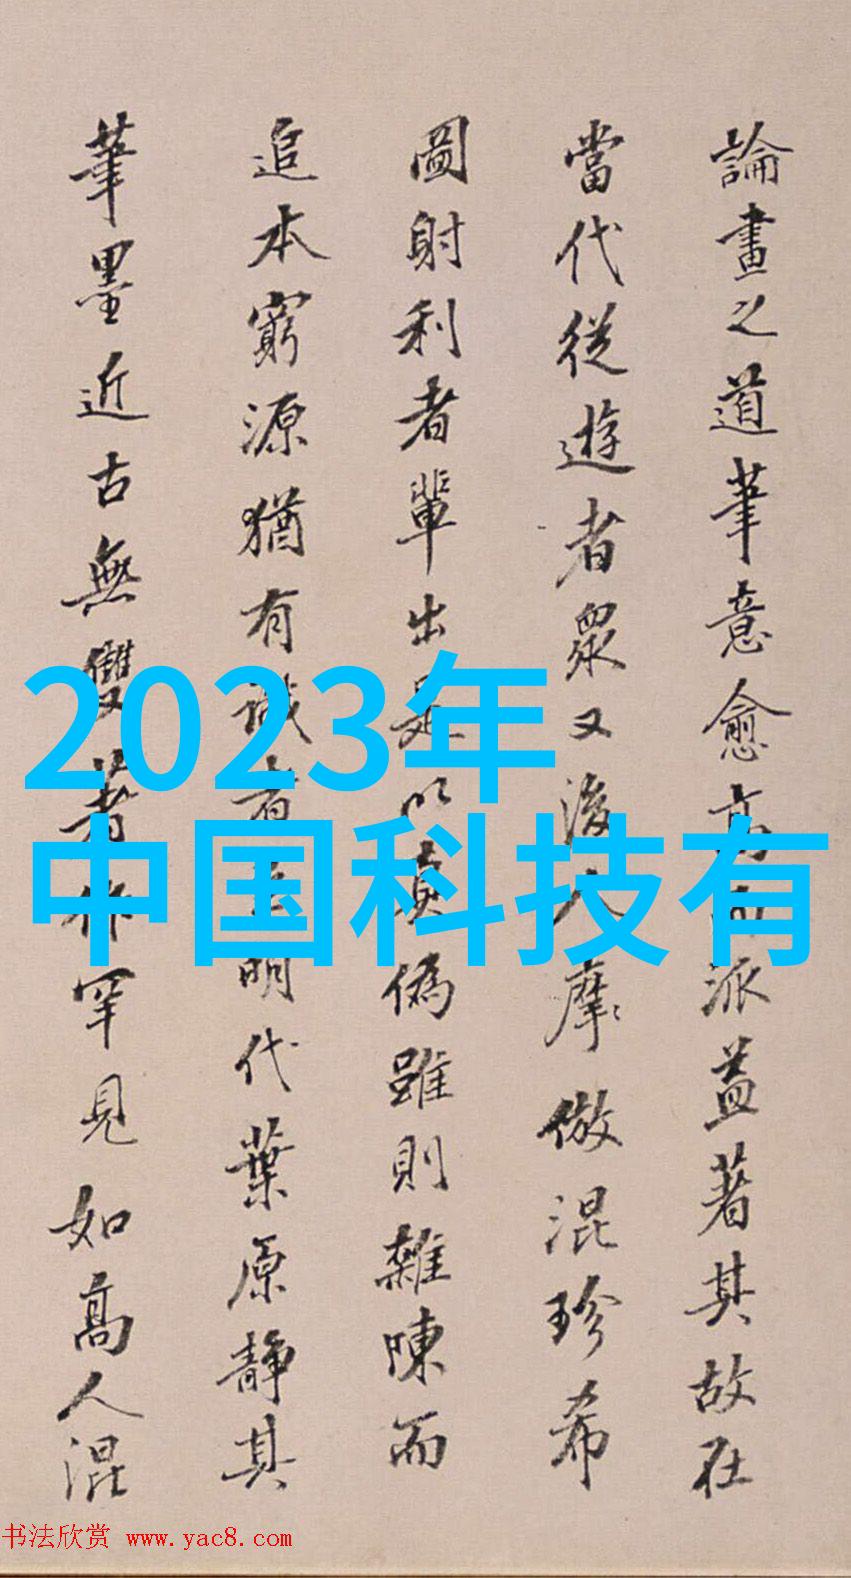 論畫之道筆意愈高而派益著其故在
當代從遊者眾又後人摩倣混珍希
圖射利者輩出是以真偽雖則雜陳而
追本窮源猶有識者 明代葉原靜其
筆墨近古無雙著作罕見如高人混
2023年
中国科技有
书法欣赏 www.yac8.com